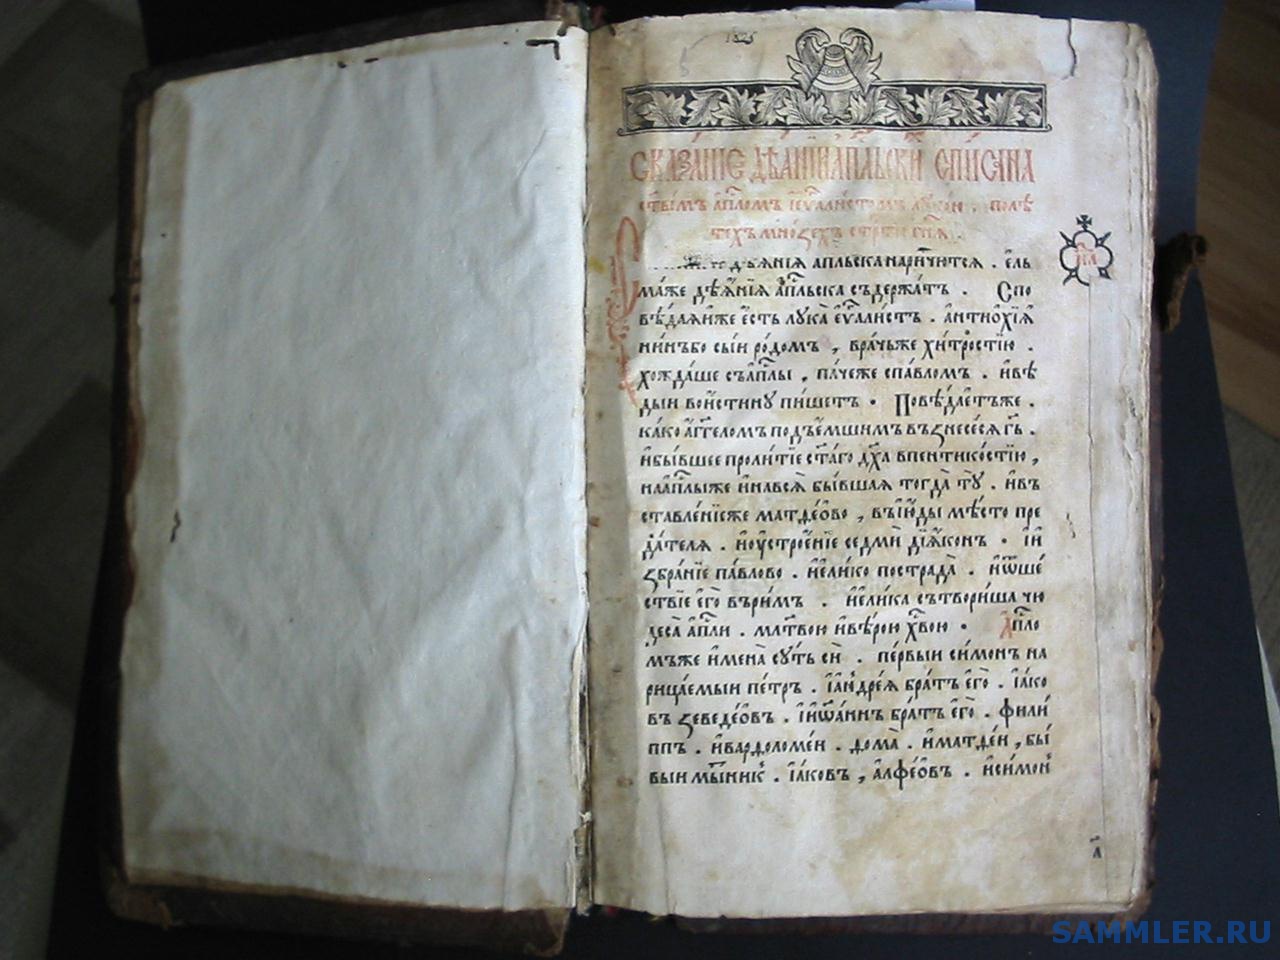 1825
сказанїе дѣанїи ап҃льски списана
ст҃ы́мъ ап҃лом їеу҃алистомъ лукою . по лѣ
тех мнозех стр҃ти гн҃я .
дѣянїя апльска нарич́ются . є҆ль
ма́же дѣа҆́нїя а҆п҃льска съдержа́тъ . Спо
вѣ́дая и҆́же є҆́сть лука̀ єу҃алистъ . а҆нтио҆хїа҆
нинъ бо сыи ро́домъ , вра́чьже хи́тростїю .
хожда́ше съ ап҃лы , па́чеже с па́вломъ . и҆ вѣ́
дыи вои́стину пи́шетъ . Повѣ́дает же .
ка́ко а҆́гг҃елом подъе́мшимъ възнесе́ся гь҃ .
и҆ бы́вшее проли́тїе ст҃а́го дх҃а в пентико́стїю ,
на ап҃лыже и҆ на вся̀ бы́вшая тогда̀ ту́ . и҆ въ
ставле́нїи же матѳе́ово , въ и҆ю́ды мѣ́сто пре
да́теля . и҆ оу҆строе́нїе седмѝ дїа҆́конъ . ї и҆
збра́нїе па́влово . и҆ є҆ли́ко пострада̀ . и҆ ѿше́
ствїе є҆го̀ въ ри́мъ . и҆ є҆ли́ка сътвори́ша чю
деса̀ а҆п҃ли . мл҃твою и҆ вѣ́рою хв҃ою . А҆п҃ло
мъже и҆мена̀ су́ть сѝ . пе́рвыи си́монъ на
рица́емыи пе́тръ . ї а҆ндре́я бра́тъ є҆го̀ . ї а҆́ко
въ зеведе́овъ . ї и҆ѡа́ннъ бра́тъ є҆го̀ . фили́
ппъ . и҆ вардоломе́и . дома̀ . и҆ матѳе́и , бы́
выи мы́тникъ . ї а҆́ковъ , а҆лфе́овъ . и҆ си́мон
SAMMLER.RU